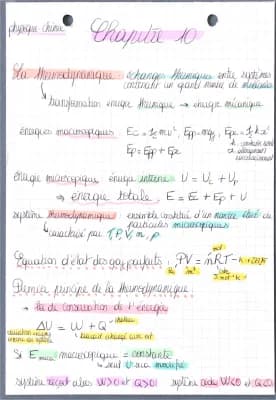 physique chimie
Chapitre 10
La thermodynamique : échanges thermiques entre systèmes
contenant un grand nombre de
transformation énergie thermique → énergie mécanique
énergies macroscopiques Ec = ½mv², Epp = mgz, Epe = ½kx²
Ep = Epp + Epe
énergie microscopique énergie interne U = Uc + Up
→ énergie totale E = Ec + Ep + U
système thermodynamique ensemble constitué d'un nombre élevé de
particules microscopiques
caractérisé par T, P, V, n, ρ
Equation d'état des gaz parfaits : PV = nRT
Premier principe de la thermodynamique :
→ loi de conservation de l'énergie
ΔU = W + Q
Si E macroscopique = constante
→ seul U
système reçoit alors W>0 et Q>0 système cède W<0 et Q<0